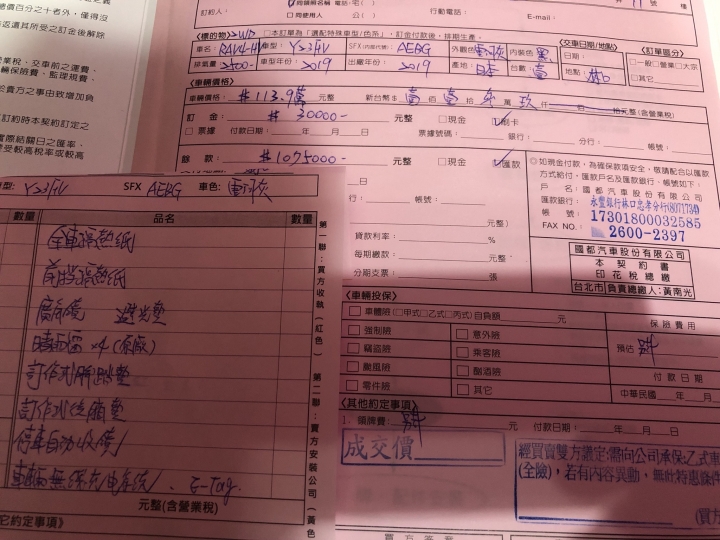 訂約人：
電話：宅(
□同使用人
公(
行動電話：
E-mail：
號
樓
價百分之十者外，僅得沒
返還其所受之訂金後解除
營業稅、交車前之運費、
輛保險費、監理規費、
於貴方之事由致增加負
訂約時本契約訂定之
實際結關日之匯率，
受較高稅率或較高
〈標的物〉2WD
□本訂單為「選配特殊車型(色系)」訂金付款後，排期生產。
〈交車日期/地點〉
〈訂單區分〉
車名：RAV4-HV
車型：
SFX(內裝代號)：AEBG
外觀色：
內裝色：黑
日期：
□一般□營業□大宗
排氣量：2500-
車型年份：2019
出廠年份：2019
產地：日本
台數：壹
地點：林口
□其它
〈車輛價格〉
車輛價格：$113.9萬 元整
新台幣$ 壹佰壹拾 萬 玖仟
拾元整(含營業稅)
訂金：$30000- 元整
□現金
刷卡
□票據
付款日期：　年　月　日
票據號碼：
銀行：
分行：
帳號：
餘款：
元整
□現金
匯款
日
行：
帳號：
◎如現金付款，為確保款項安全，敬請配合以匯款
方式給付，匯款戶名及匯款銀行、帳號如下：
戶名：國都汽車股份有限公司
匯款銀行：永豐銀行林口忠孝分行(8071734)
帳號：17301800032585
FAX NO.：2600-2397
元整）
貸款利率：　%
每期繳款：　元整
分期支票：　張
國都汽車股份有限公司
本契約書
印花稅總繳
台北市 負責總繳人：黃南光
型：
SFX AEBG
車色：
數量
品名
數量
全車隔熱紙
前擋隔熱紙
廣角鏡　避光墊
晴雨窗 x4 (原廠)
訂作式腳踏墊
訂作式後廂墊
停車自動收鏡
車輛無線充電系統、E-Tag
元整(含營業稅)
它約定事項》
第一聯：買方收執（紅色）
第二聯：賣方安裝公司（黃色
〈車輛投保〉
□車體險(□甲式□乙式□丙式)自負額　元
保險費用
□強制險
□意外險
預估
□竊盜險
□乘客險
□颱風險
□酗酒險
付款日期
□零件險
□其它
中華民國　年　月　日
〈其他約定事項〉
1.領牌費：
元
付款日期：　年　月　日
成交價
經買賣雙方議定：需向公司承保：乙式車
(全險)，若有內容異動，無此特惠條件
(買方
買方簽章